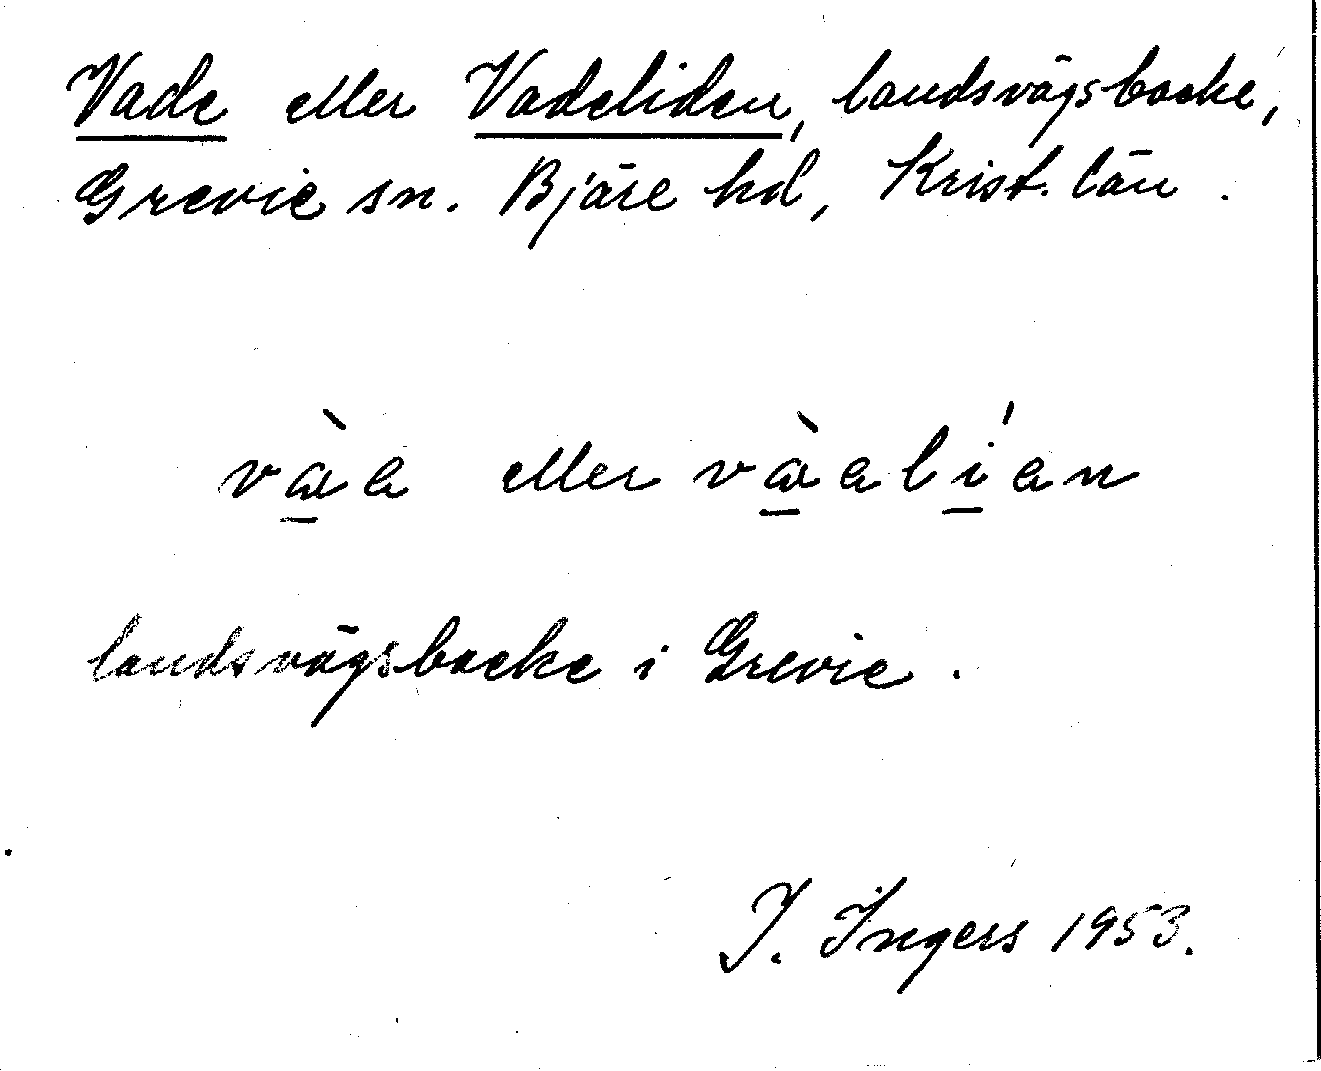 Vade eller Vadeliden, landsvägsbacke,
Grevie sn. Bjäre hd, Krist. län.
vàa eller vàalían
landsvägsbacke i Grevie.
I. Ingers 1953.